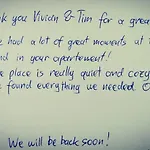 nk you Vivian & Tim for a grea
had a lot of great moments at t
nd in your apartement!
e place is really quiet and cozy
found everything we needed. ☺
We will be back soon!